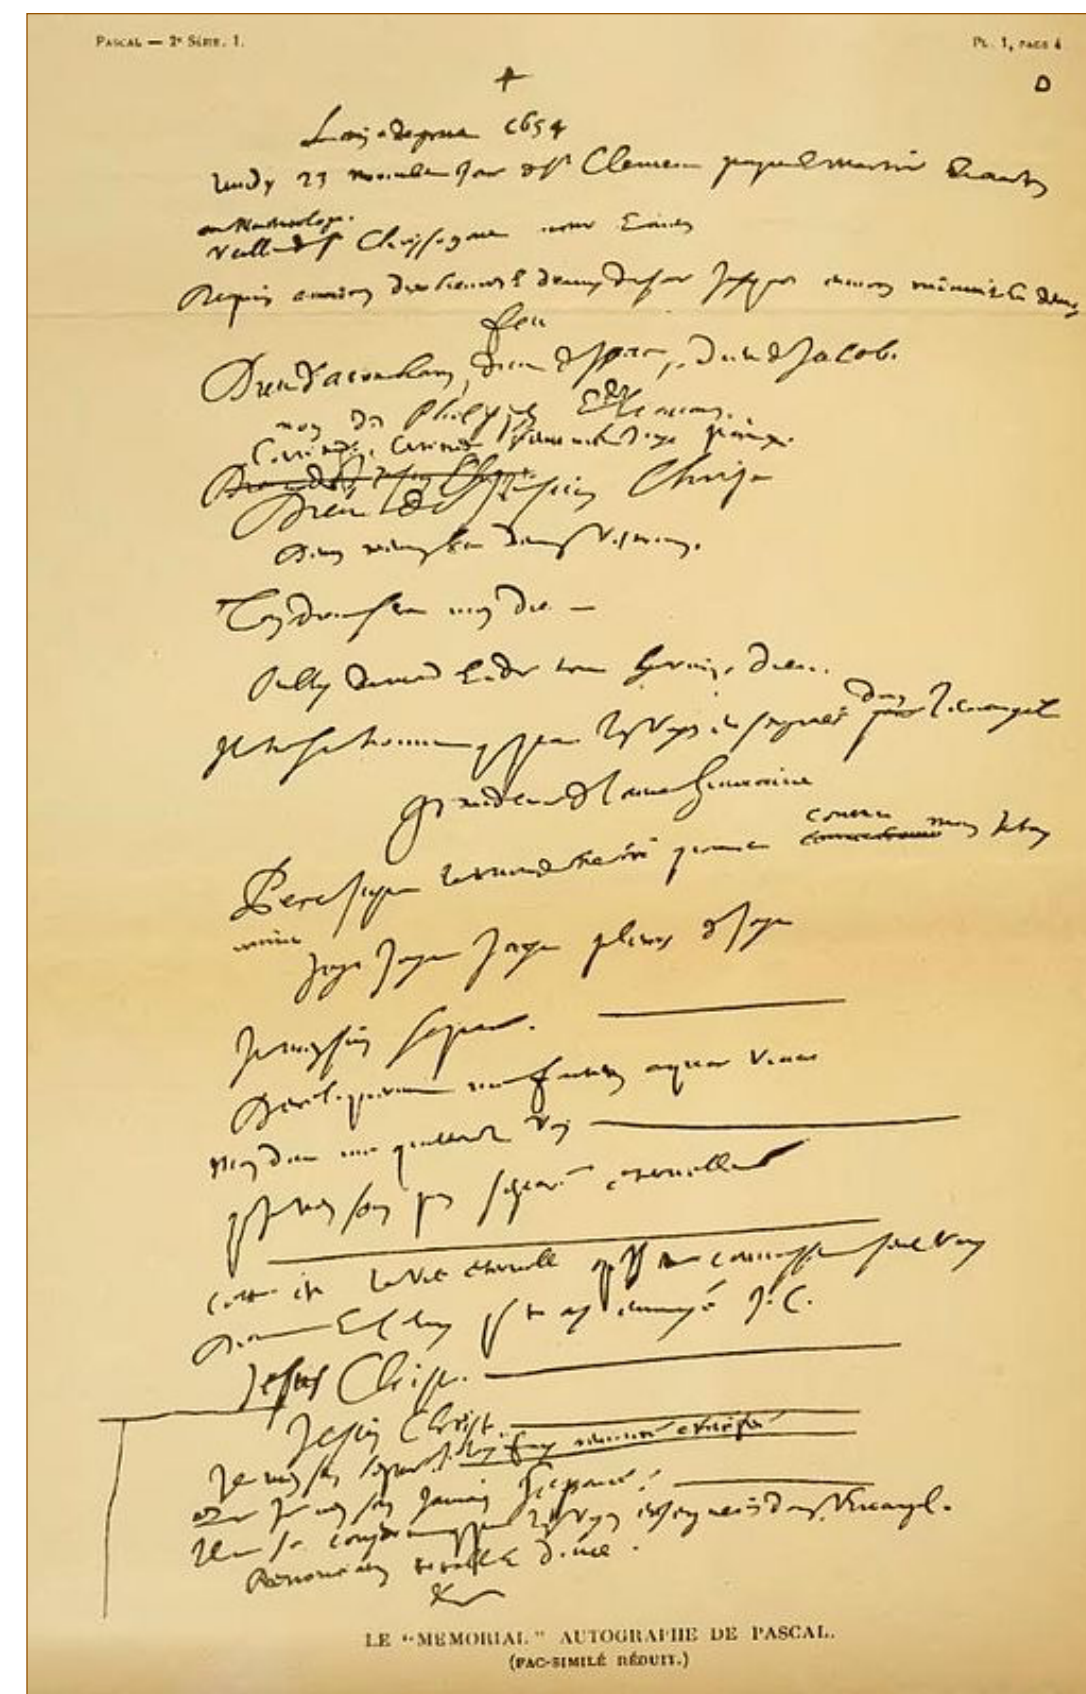 PASCAL — 2e SÉRIE. 1.
PL. 1, PAGE 4
D
L'an de grace 1654
Lundy 23 novembre jour de St Clement pape et martir et autres
au Martirologe.
veille de St Chrysogone martir et autres
Depuis environ dix heures et demy du soir jusques environ minuit et demy
feu
Dieu d'Abraham, Dieu d'Isaac, Dieu de Jacob.
non des Philosophes et des scavans.
Certitude, Certitude Sentiment Joye paix.
Dieu de Jesus Christ
Dieu de Jesus Christ
Deum meum et Deum vestrum.
Ton Dieu sera mon Dieu —
Oubly du monde et de tout hormis Dieu.
Il ne se trouve que par les voyes enseignées dans l'Evangile
Grandeur de l'ame humaine
Pere juste le monde ne t'a point connu mais je t'ay
connu
Joye Joye Joye pleurs de joye
Je m'en suis separé.
Dereliquerunt me fontem aquae vivae
mon Dieu me quitterez vous
que je n'en sois pas separé eternellement
Cette est la vie eternelle qu'ils te connoissent seul vray
Dieu et celuy que tu as envoyé J.C.
Jesus Christ.
Jesus Christ.
Je m'en suis separé je l'ay fuy renoncé crucifié
que je n'en sois jamais separé.
Il ne se conserve que par les voyes enseignées dans l'Evangile.
Renonciation totale et douce.
LE "MEMORIAL" AUTOGRAPHE DE PASCAL.
(FAC-SIMILÉ RÉDUIT.)